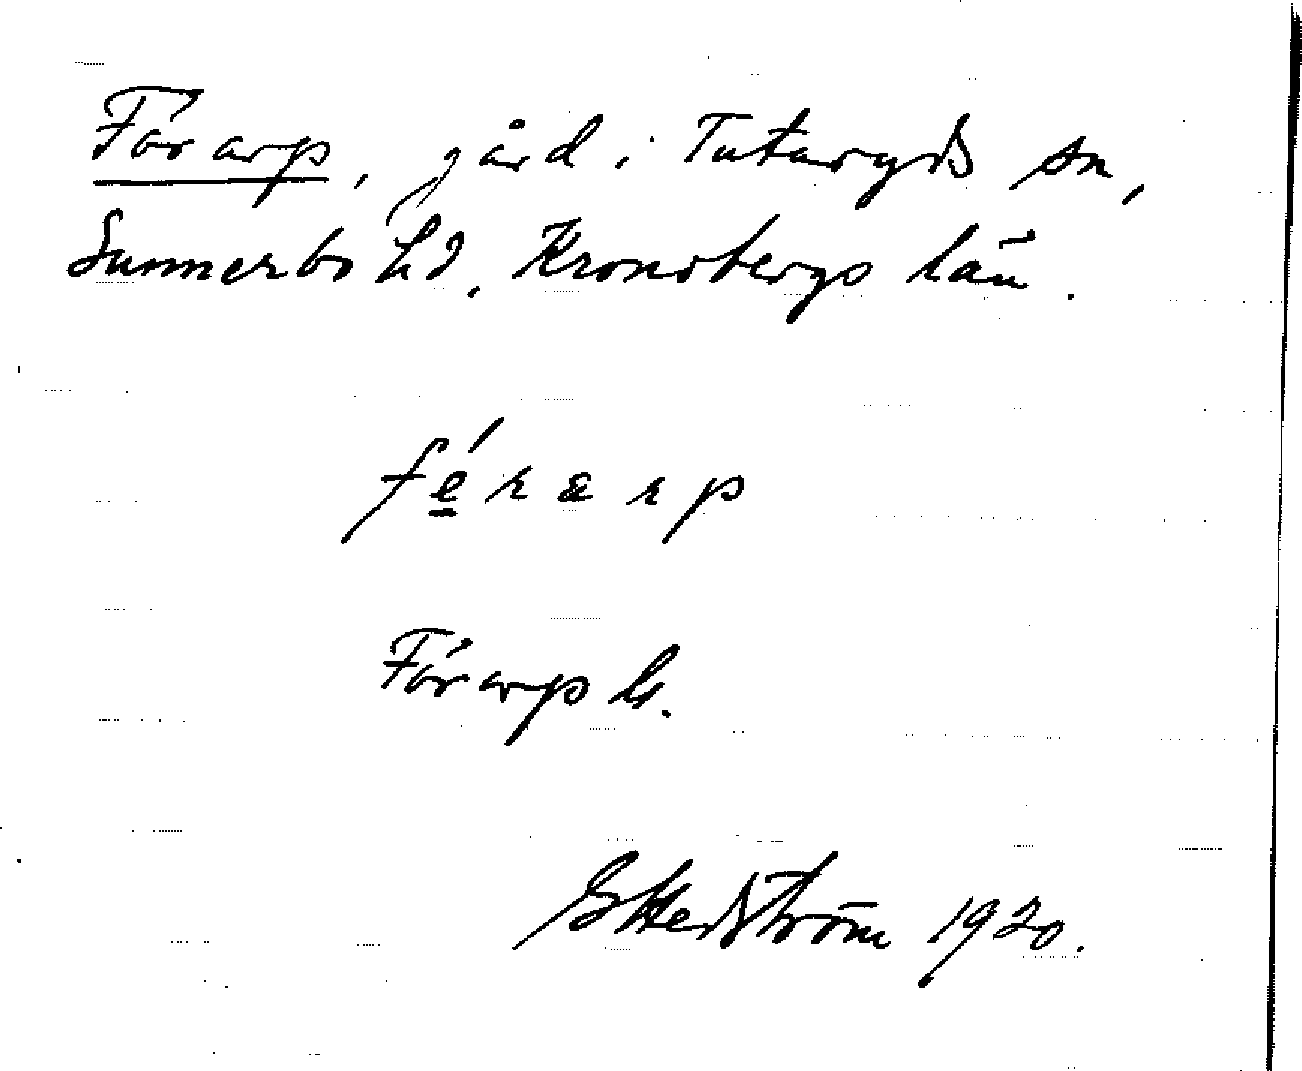 Förarp, gård i Tutaryds sn,
Sunnerbo hd, Kronobergs län.
fé̱rarp
Förarp kr.
G Hedström 1920.